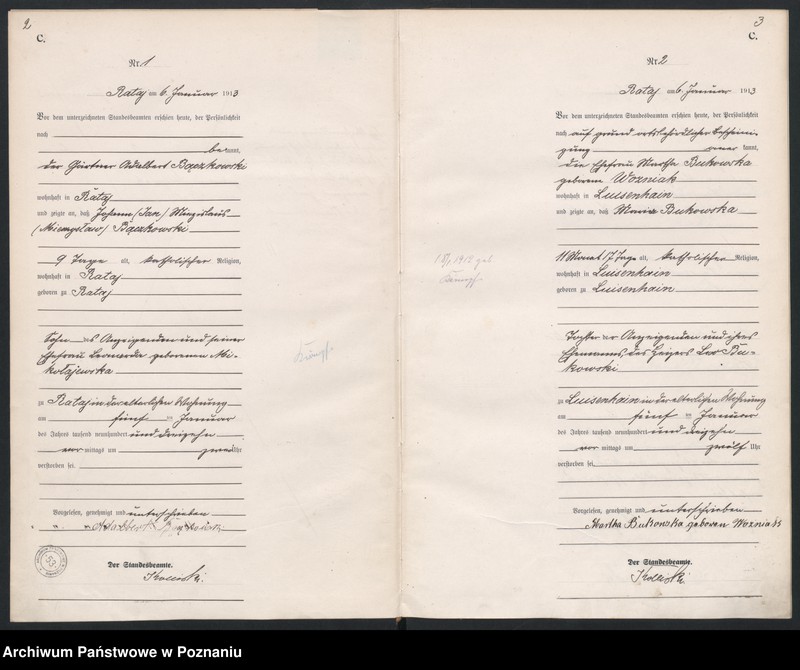 2
C.
Nr. 1
Rataj am 6. Januar 1913
Vor dem unterzeichneten Standesbeamten erschien heute, der Persönlichkeit
nach
bekannt,
der Gärtner Adalbert Bączkowski
wohnhaft in Rataj
und zeigte an, daß Johann (Jan) Miezislaus
(Mieczysław) Bączkowski
9 Tage alt, katholischer Religion,
wohnhaft in Rataj
geboren zu Rataj
Sohn des Anzeigenden und seiner
Ehefrau Leonarda geborenen Mi-
kołajewska
zu Rataj in der elterlichen Wohnung
am fünf ten Januar
des Jahres tausend neunhundert und dreizehn
vor mittags um zwei Uhr
verstorben sei.
Vorgelesen, genehmigt und unterschrieben
Adalbert Bączkowski
Der Standesbeamte.
53
3
C.
Nr. 2
Rataj am 6. Januar 1913
Vor dem unterzeichneten Standesbeamten erschien heute, der Persönlichkeit
nach auf grund ortsbehördlicher Bescheini-
gung aner kannt,
die Ehefrau Martha Bukowska
geborene Wozniak
wohnhaft in Luisenhain
und zeigte an, daß Maria Bukowska
11 Monat 17 Tage alt, katholischer Religion,
wohnhaft in Luisenhain
geboren zu Luisenhain
Tochter der Anzeigenden und ihres
Ehemanns, des Heizers Leo Bu-
kowski
zu Luisenhain in der elterlichen Wohnung
am fünf ten Januar
des Jahres tausend neunhundert und dreizehn
vor mittags um zwölf Uhr
verstorben sei.
Vorgelesen, genehmigt und unterschrieben
Martha Bukowska geboren Wozniak
Der Standesbeamte.
Archiwum Państwowe w Poznaniu